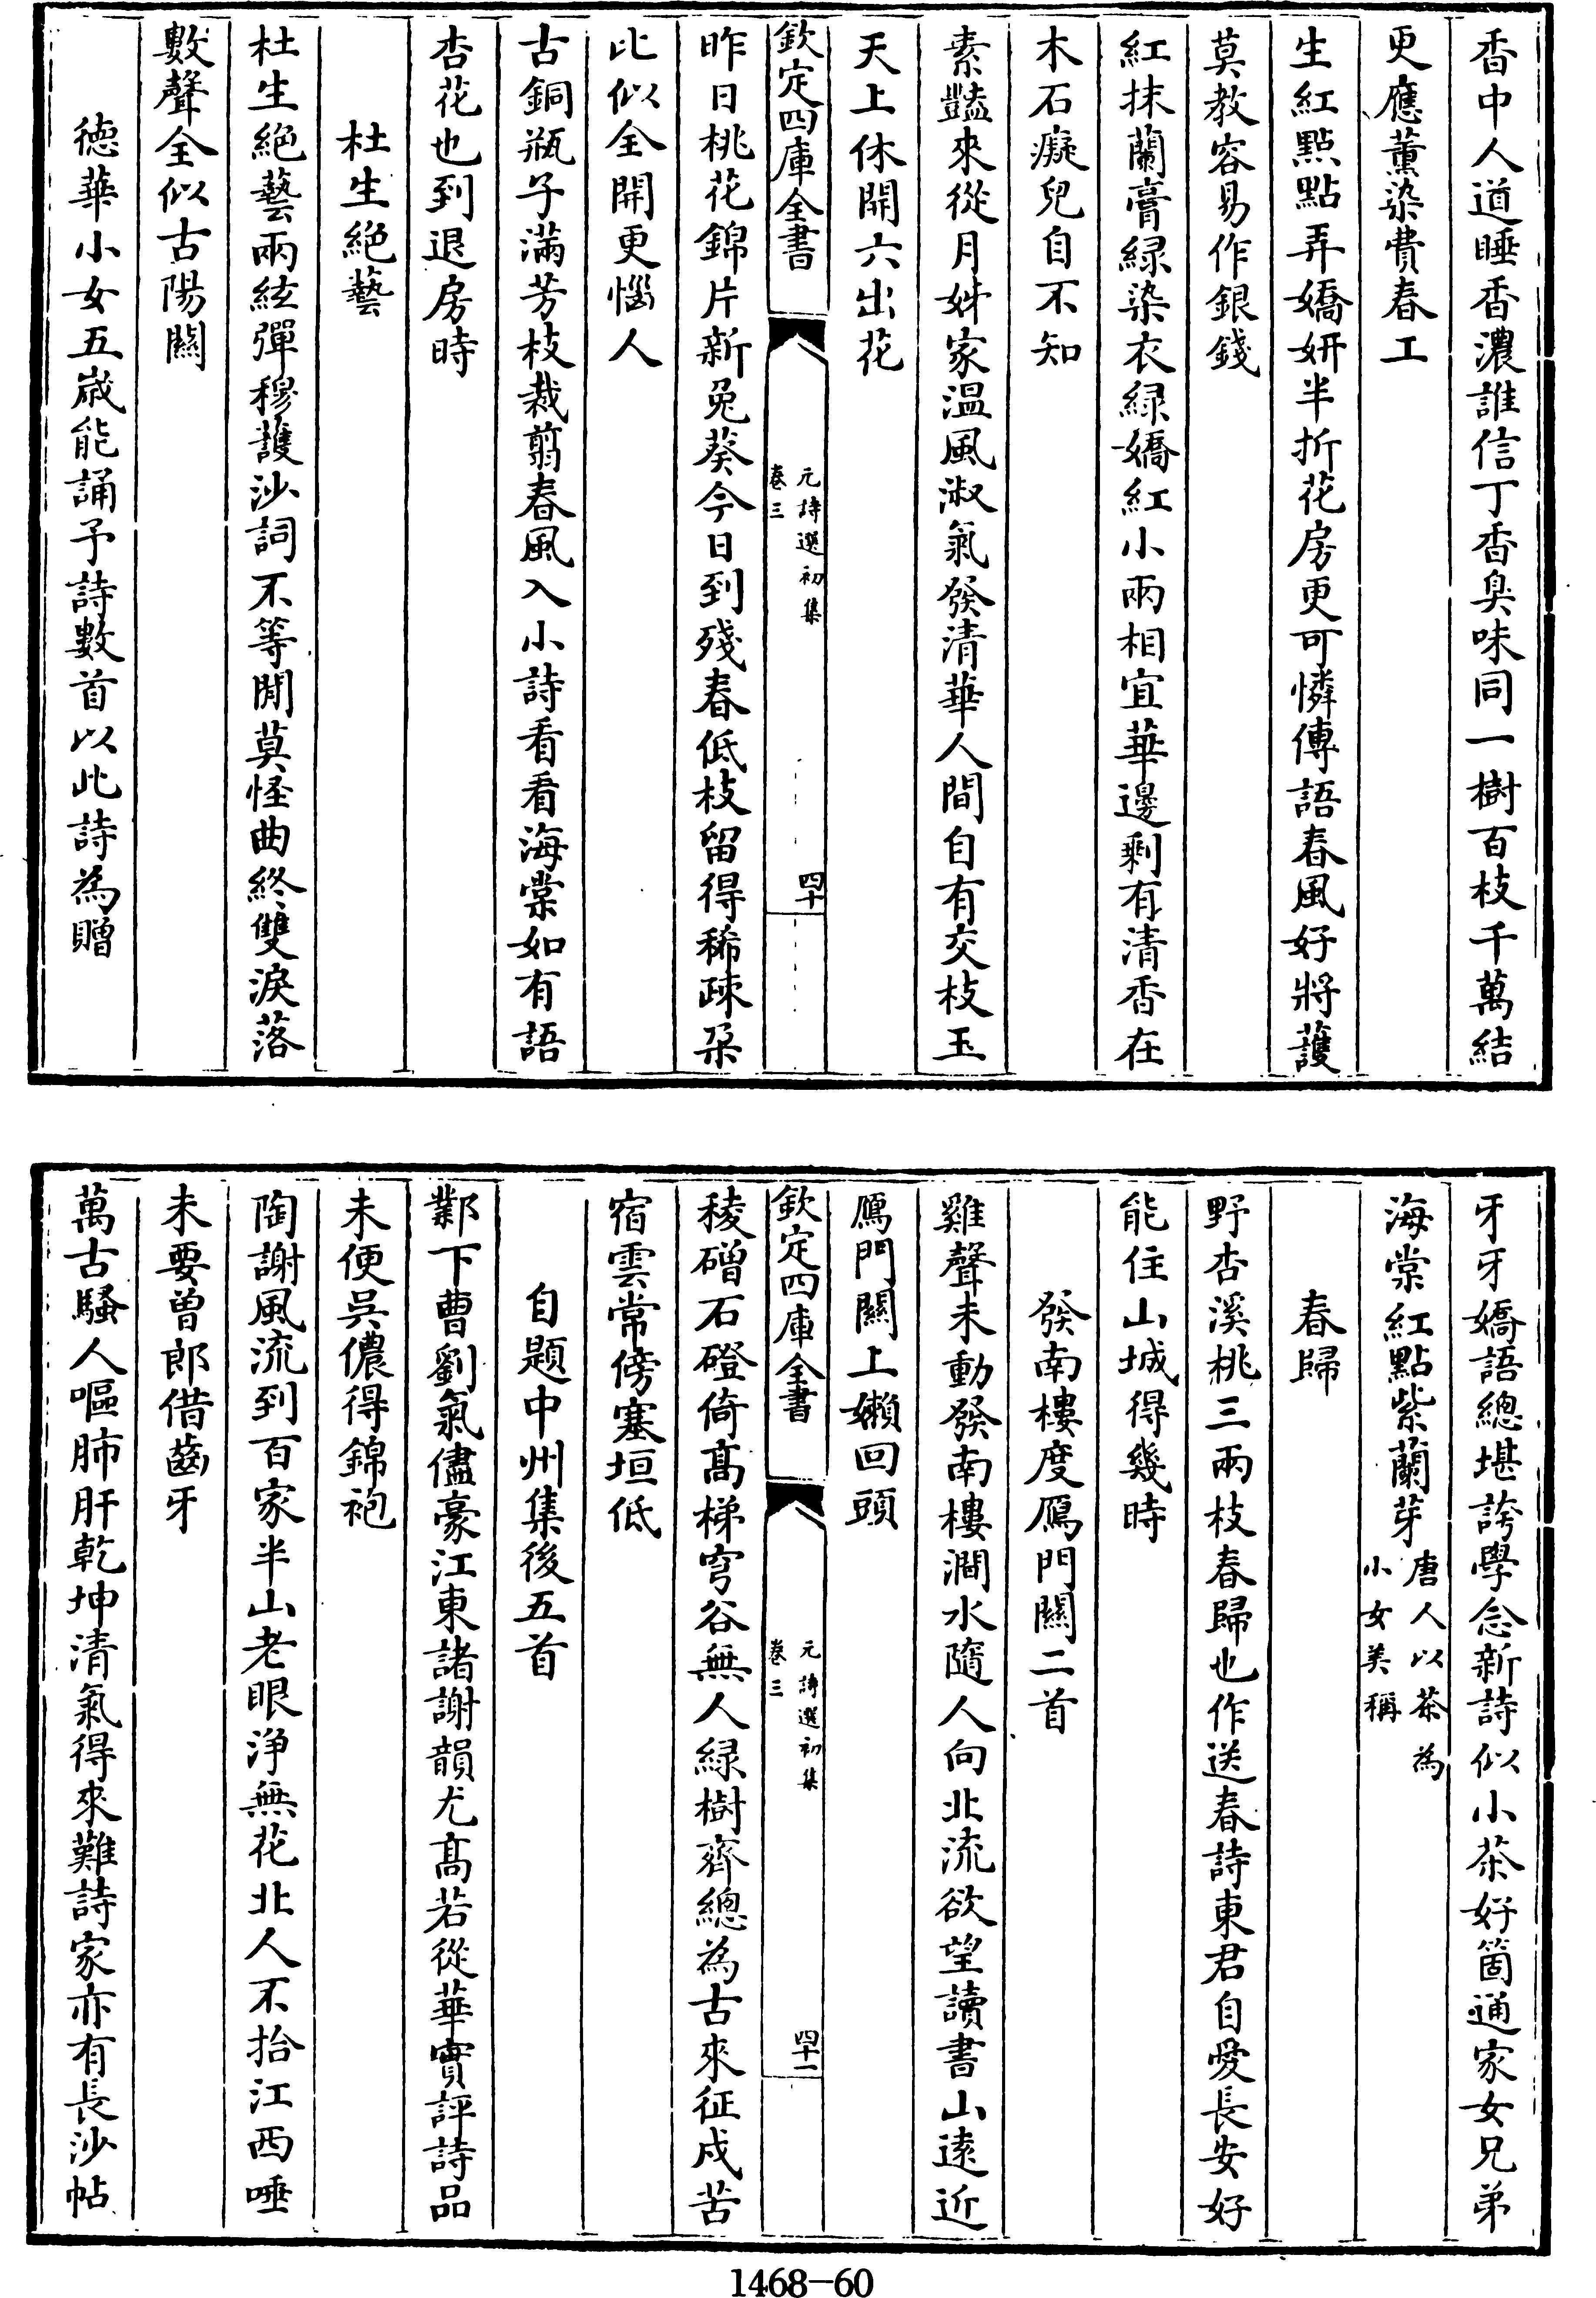 香中人道睡香濃誰信丁香臭味同一樹百枝千萬結
更應薰染費春工
生紅點點弄嬌妍半折花房更可憐傳語春風好將護
莫教容易作銀錢
紅抹蘭膏緑染衣緑嬌紅小兩相宜華邊剩有清香在
木石癡兒自不知
素豔來從月姊家温風淑氣發清華人間自有交枝玉
天上休開六出花
欽定四庫全書
元詩選初集
卷三
四十
昨日桃花錦片新兔葵今日到殘春低枝留得稀疎朶
比似全開更惱人
古銅瓶子滿芳枝裁翦春風入小詩看看海棠如有語
杏花也到退房時
杜生絶藝
杜生絶藝兩絃彈穆護沙詞不等閒莫怪曲終雙淚落
數聲全似古陽關
德華小女五歲能誦予詩數首以此詩為贈
牙牙嬌語總堪誇學念新詩似小茶好箇通家女兄弟
海棠紅點紫蘭芽唐人以茶為小女美稱
春歸
野杏溪桃三兩枝春歸也作送春詩東君自愛長安好
能住山城得幾時
發南樓度鴈門關二首
雞聲未動發南樓澗水隨人向北流欲望讀書山逺近
鴈門關上嬾回頭
欽定四庫全書
元詩選初集
卷三
四十一
稜磳石磴倚髙梯穹谷無人緑樹齊總為古來征戍苦
宿雲常傍塞垣低
自題中州集後五首
鄴下曹劉氣儘豪江東諸謝韻尤髙若從華實評詩品
未便呉儂得錦袍
陶謝風流到百家半山老眼淨無花北人不拾江西唾
未要曾郎借齒牙
萬古騷人嘔肺肝乾坤清氣得來難詩家亦有長沙帖
1468-60